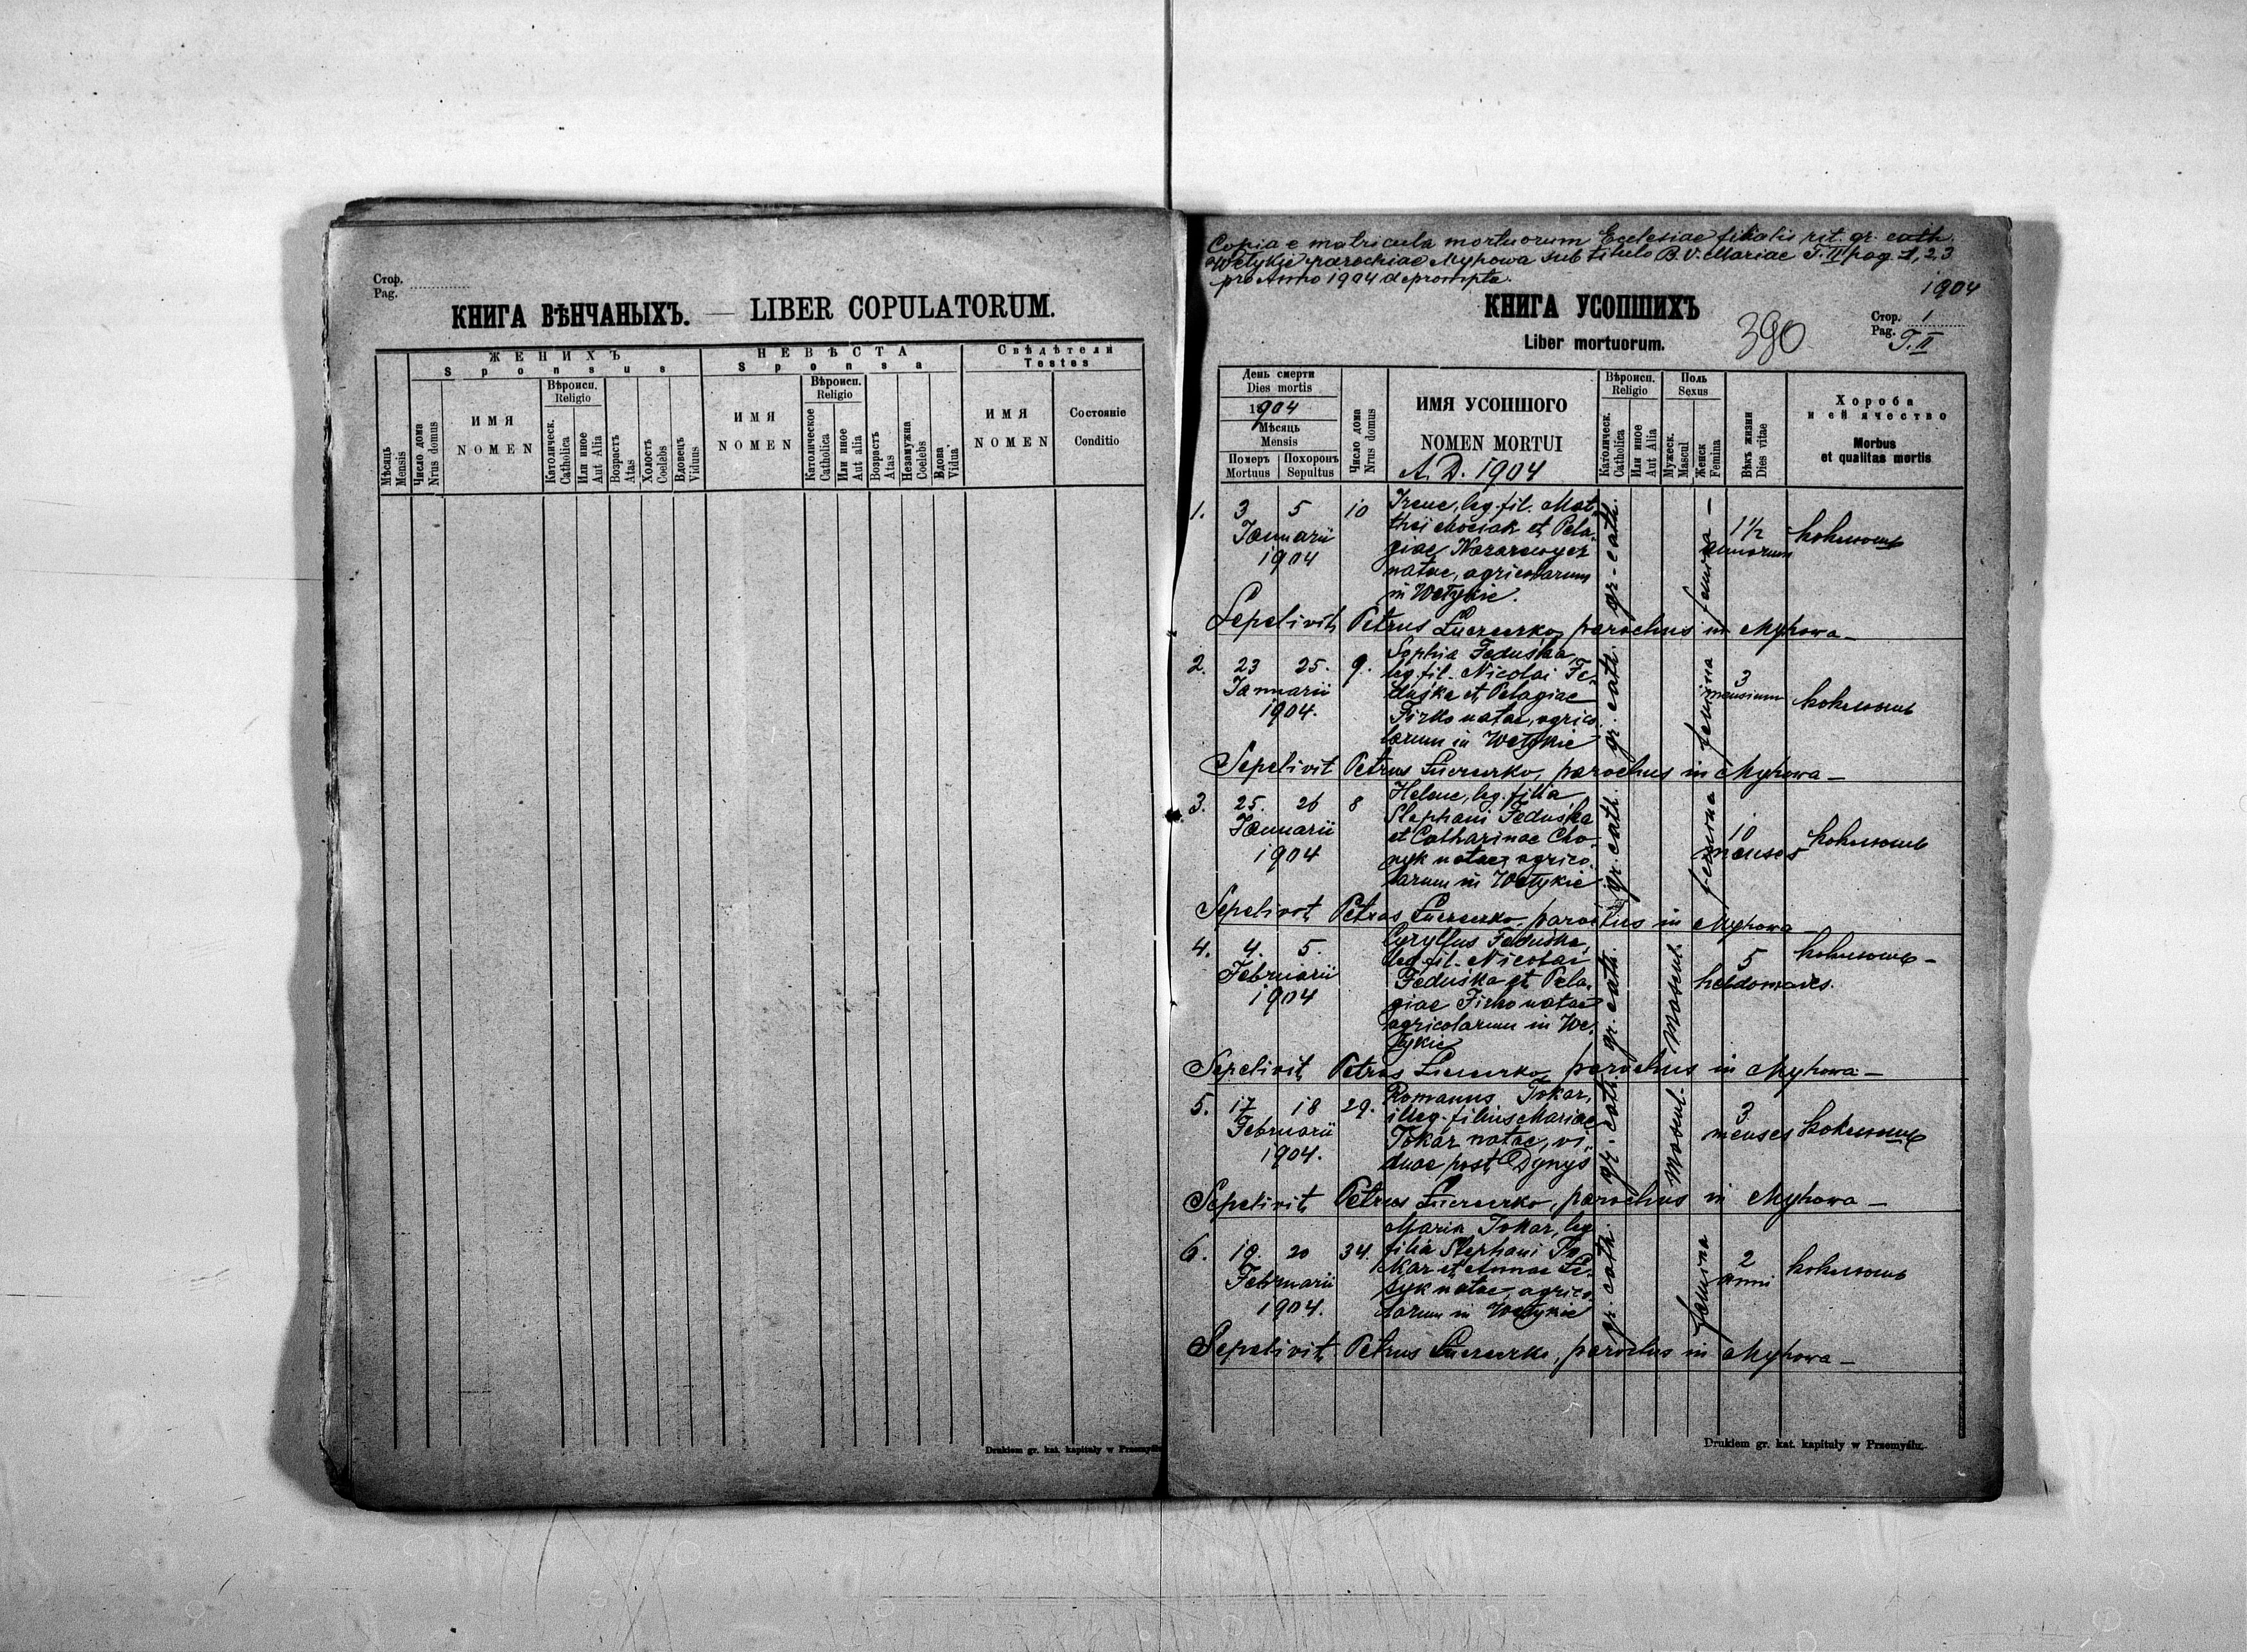 Стор.
Pag.
КНИГА ВѢНЧАНЫХЪ. — LIBER COPULATORUM.
Мѣсяць
Mensis
ЖЕНИХЪ
Sponsus
Число дома
Nrus domus
ИМЯ
NOMEN
Вѣроисп.
Religio
Католическ.
Catholica
Или иное
Aut Alia
Возрастъ
Atas
Холостъ
Coelebs
Вдовецъ
Viduus
НЕВѢСТА
Sponsa
ИМЯ
NOMEN
Вѣроисп.
Religio
Католическое
Catholica
Или иное
Aut alia
Возрастъ
Atas
Незамужна
Coelebs
Вдова
Vidua
Свѣдѣтели
Testes
ИМЯ
NOMEN
Состояніе
Conditio
Drukiem gr. kat. kapituły w Przemyślu
Copia e matricula mortuorum Ecclesiae filialis rit. gr. cath.
Wełykie parochiae Myhowa sub titulo B. V. Mariae T. II pag 1, 2, 3
pro Anno 1904 deprompta.
1904
КНИГА УСОПШИХЪ
Liber mortuorum.
390
Стор. 1
Pag. T. II
День смерти
Dies mortis
1904
Мѣсяць
Mensis
Померъ
Mortuus
Похоронъ
Sepultus
Число дома
Nrus domus
ИМЯ УСОПШОГО
NOMEN MORTUI
A. D. 1904
Вѣроисп.
Religio
Католическ.
Catholica
Или иное
Aut Alia
Поль
Sexus
Мужеск.
Mascul
Женск
Femina
Вѣкъ жизни
Dies vitae
Хороба
и еѣ ячество
Morbus
et qualitas mortis
1. 3 5 10
Januarii
1904
Irene, leg. fil. Mat-
thei Mociak et Pela-
giae
natae, agricolarum
in Wełykie.
gr. cath.
femina
1 1/2
annorum
кокелюшъ
Sepelivit Petrus parochus in Myhowa —
2. 23 25. 9.
Januarii
1904.
Sophia Feduśka,
leg. fil. Nicolai Fe-
duśka et Pelagiae
Firko natae, agrico-
larum in Wełykie
gr. cath.
femina
3
mensium
кокелюшъ
Sepelivit Petrus parochus in Myhowa —
3. 25. 26 8
Januarii
1904
Helene, leg. filia
Stephani Feduśka
et Catharinae Cho-
nyk natae, agrico-
larum in Wełykie
gr. cath.
femina
10
menses
кокелюшъ
Sepelivit Petrus parochus in Myhowa
4. 4. 5.
Februarii
1904
Cyryllus Feduśka,
leg. fil. Nicolai
Feduśka et Pela-
giae Firko natae
agricolarum in We-
łykie
gr. cath.
mascul.
5
hebdomades.
кокелюшъ —
Sepelivit Petrus parochus in Myhowa —
5. 17 18 29.
Februarii
1904.
Romanus Tokar,
illeg. filius Mariae
Tokar natae, vi-
duae post Dynys
gr. cath.
mascul.
3
menses
кокелюшъ
Sepelivit Petrus parochus in Myhowa —
6. 19. 20 34.
Februarii
1904.
Maria Tokar, leg
filia Stephani To-
kar et Annae
natae, agrico-
larum in Wełykie
gr. cath.
femina
2
anni
кокелюшъ
Sepelivit Petrus parochus in Myhowa —
Drukiem gr. kat. kapituły w Przemyślu.